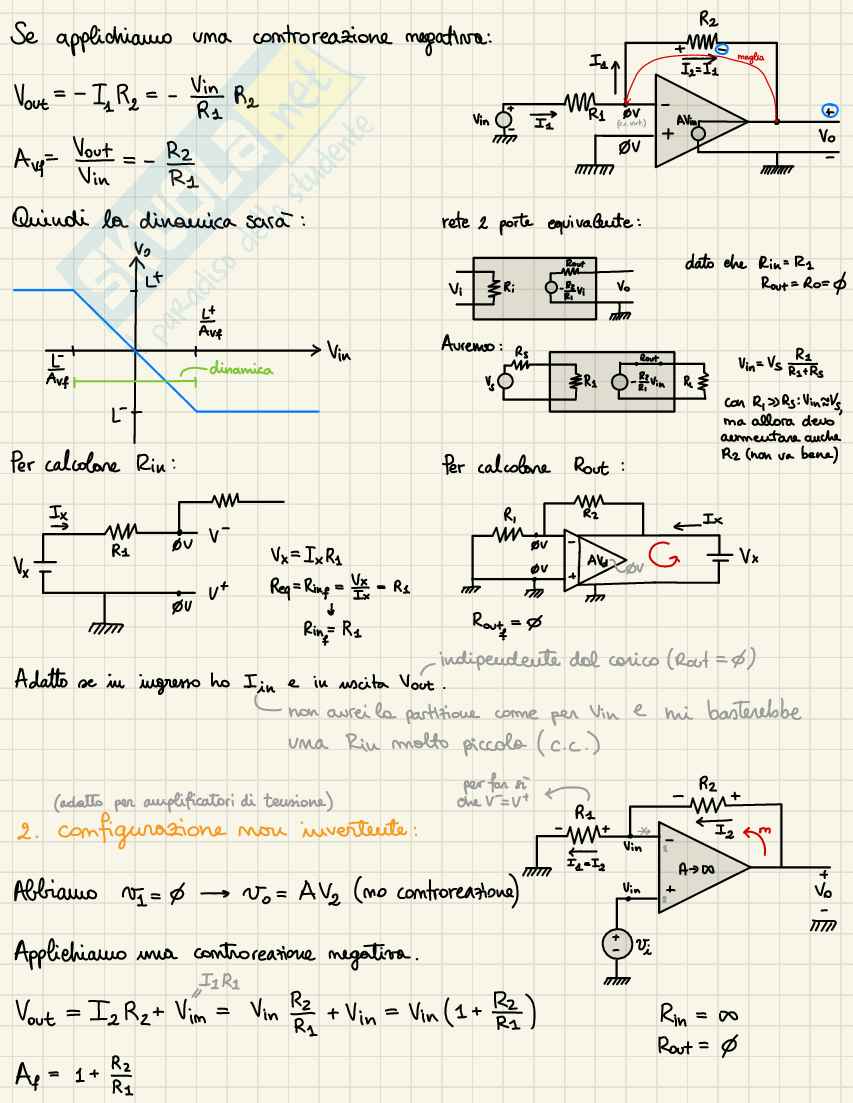 Se applichiamo una controreazione negativa:
Vout = - I1 R2 = - Vin/R1 R2
Avf = Vout/Vin = - R2/R1
R2
+ -
I1
I2=I1
maglia
Vin
+
-
I1
R1
ØV
ØV
-
+
AVin
+
Vo
-
Skuola.net
paradiso dello studente
Quindi la dinamica sarà:
Vo
L+
L+/Avf
Vin
L-/Avf
dinamica
L-
rete 2 porte equivalente:
Vi Ri Rout -R2/R1 Vi Vo
dato che Rin = R1
Rout = Ro = Ø
Avremo:
Vs Rs R1 Rout -R2/R1 Vin RL
Vin = Vs R1/(R1+Rs)
con R1 ≫ Rs: Vin ≈ Vs,
ma allora devo
aumentare anche
R2 (non va bene)
Per calcolare Rin:
Ix
Vx R1 ØV V-
ØV V+
Vx = Ix R1
Req = Rinf = Vx/Ix = R1
↓
Rinf = R1
Per calcolare Rout:
R1 R2 Ix
ØV -
ØV +
ØV
Vx
Routf = Ø
indipendente dal carico (Rout = Ø)
Adatto se in ingresso ho Iin e in uscita Vout.
non avrei la partizione come per Vin e mi basterebbe
una Rin molto piccola (c.c.)
(adatto per amplificatori di tensione)
2. configurazione non invertente:
per far sì
che V-=V+
- R1 +
I1=I2
- R2 +
I2
m
Vin
-
1
A→∞
Vin
+
2
+
-
vi
+
Vo
-
Abbiamo v1 = Ø → vo = AV2 (no controreazione)
Applichiamo una controreazione negativa.
I1R1
Vout = I2 R2 + Vin = Vin R2/R1 + Vin = Vin (1 + R2/R1)
Af = 1 + R2/R1
Rin = ∞
Rout = Ø